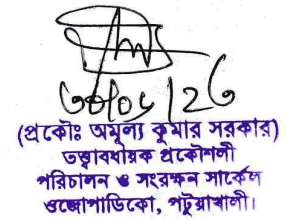 (প্রকৌঃ অমূল্য কুমার সরকার)
তত্ত্বাবধায়ক প্রকৌশলী
পরিচালন ও সংরক্ষন সার্কেল
ওজোপাডিকো, পটুয়াখালী।